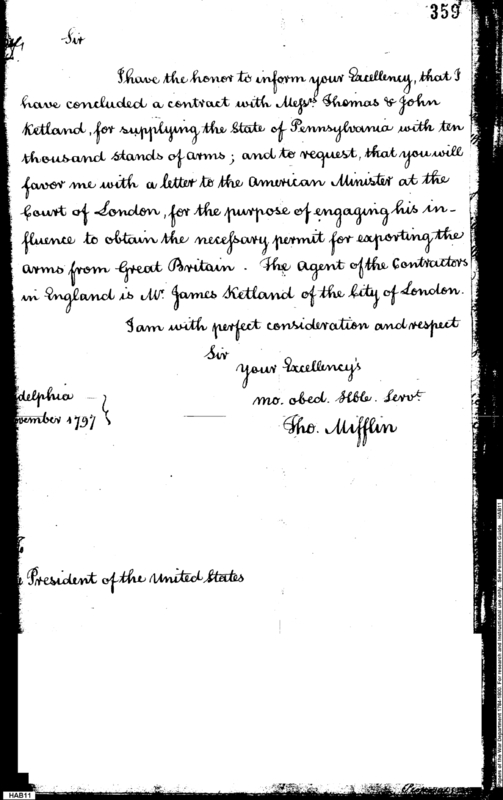 359
Sir
I have the honor to inform your Excellency, that I
have concluded a contract with Messrs. Thomas & John
Ketland, for supplying the State of Pennsylvania with ten
thousand stands of arms; and to request, that you will
favor me with a letter to the American Minister at the
Court of London, for the purpose of engaging his in-
fluence to obtain the necessary permit for exporting the
arms from Great Britain. The Agent of the Contractors
in England is Mr. James Ketland of the City of London.
I am with perfect consideration and respect
Sir
Your Excellency's
mo. obed. Hble. Servt.
Tho. Mifflin
delphia
vember 1797
President of the United States
HAB11